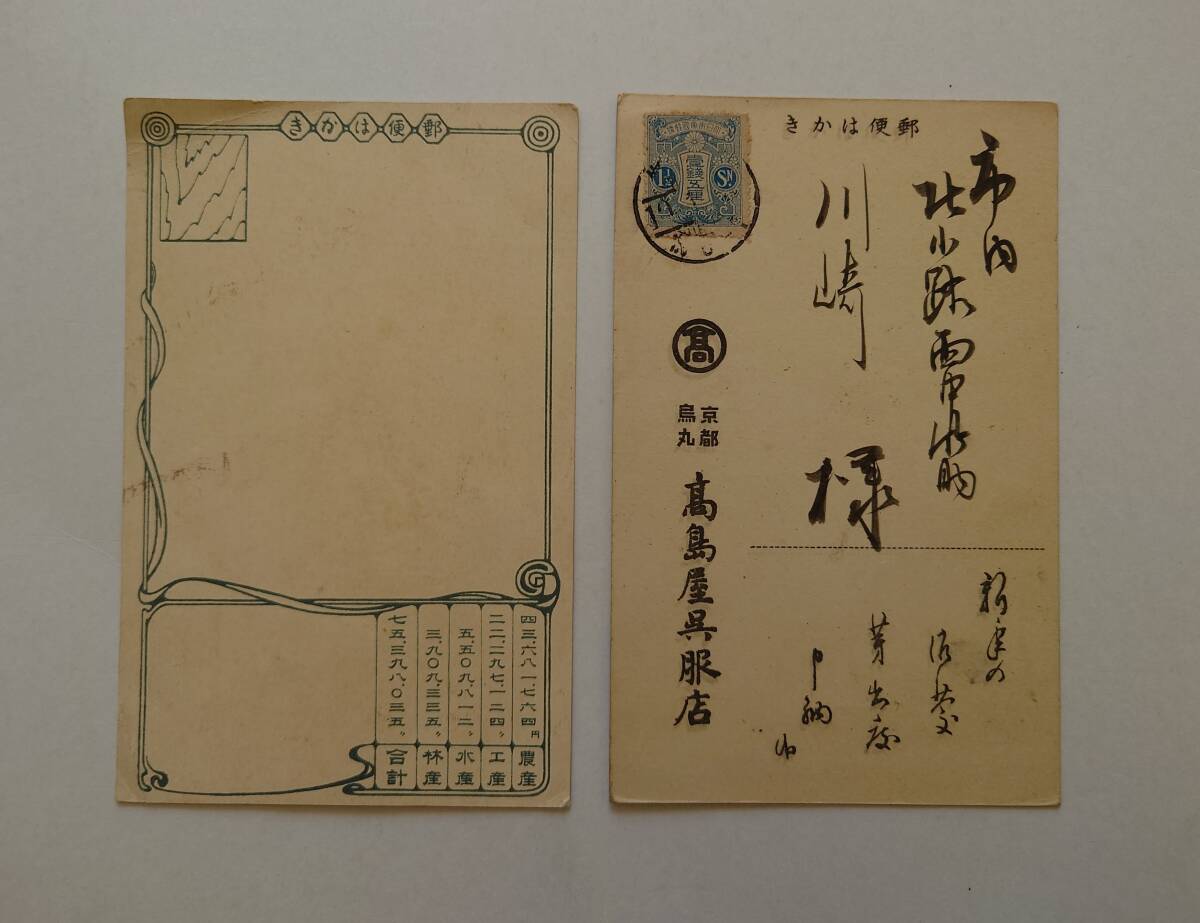 郵便はかき
四三、六八一、七六四円
農産
二二、二九七、一二四〃
工産
五、五〇九、八一二〃
水産
三、九〇九、三三五〃
林産
七五、三九八、〇三五〃
合計
郵便はかき
壹錢五厘
1½
Sɴ
市内
川崎
様
新年の
芽出度
申納
髙
京都
烏丸
髙島屋呉服店